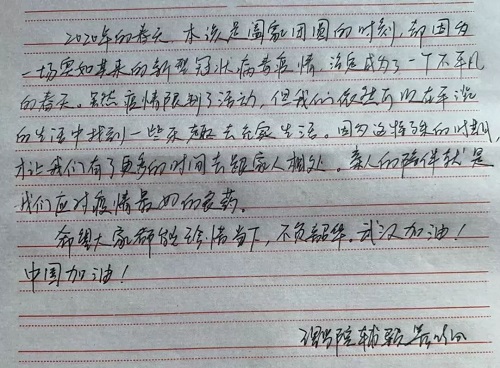 2020年的春天,本该是阖家团圆的时刻,却因为
一场突如其来的新型冠状病毒疫情,注定成为了一个不平凡
的春天。虽然疫情限制了活动,但我们依然可以在平淡
的生活中找到一些乐趣去充实生活。因为这特殊的时刻,
才让我们有了更多的时间去跟家人相处。亲人的陪伴就是
我们应对疫情最好的良药。
希望大家都能珍惜当下,不负韶华。武汉加油!
中国加油!
理学院辅